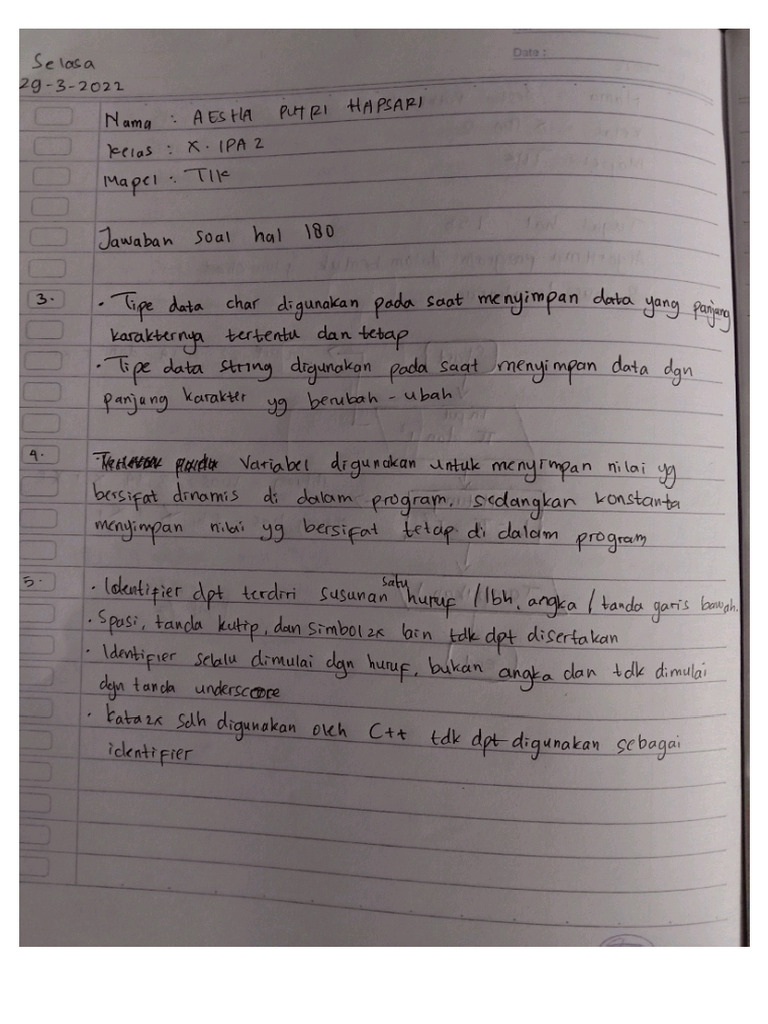 Date :
Selasa
29-3-2022
Nama : AESHA PUTRI HAPSARI
Kelas : X. IPA 2
Mapel : TIK
Jawaban soal hal 180
3. • Tipe data char digunakan pada saat menyimpan data yang panjang
karakternya tertentu dan tetap
• Tipe data string digunakan pada saat menyimpan data dgn
panjang karakter yg berubah - ubah
4. Variabel digunakan untuk menyimpan nilai yg
bersifat dinamis di dalam program, sedangkan konstanta
menyimpan nilai yg bersifat tetap di dalam program
5. • Identifier dpt terdiri susunan satu huruf /lbh, angka / tanda garis bawah.
• Spasi, tanda kutip, dan simbol2x lain tdk dpt disertakan
• Identifier selalu dimulai dgn huruf, bukan angka dan tdk dimulai
dgn tanda underscore
• Kata2x sdh digunakan oleh C++ tdk dpt digunakan sebagai
identifier